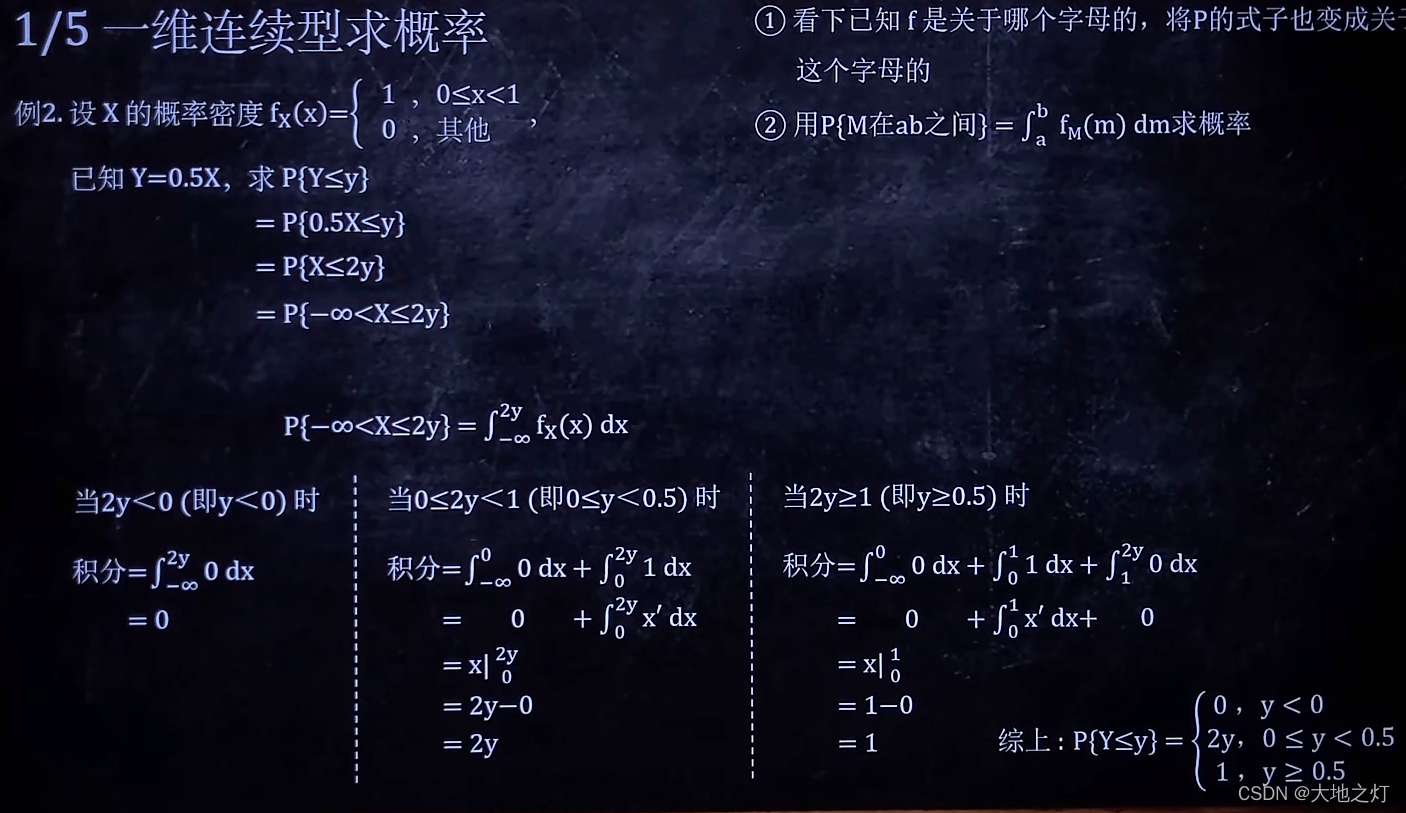 1/5 一维连续型求概率
① 看下已知 f 是关于哪个字母的，将P的式子也变成关于
这个字母的
② 用P{M在ab之间} = ∫_a^b f_M(m) dm求概率
例2. 设 X 的概率密度 f_X(x)={ 1 , 0≤x<1
0 , 其他 ,
已知 Y=0.5X，求 P{Y≤y}
= P{0.5X≤y}
= P{X≤2y}
= P{−∞<X≤2y}
P{−∞<X≤2y} = ∫_{−∞}^{2y} f_X(x) dx
当2y＜0 (即y＜0) 时
积分=∫_{−∞}^{2y} 0 dx
= 0
当0≤2y＜1 (即0≤y＜0.5) 时
积分=∫_{−∞}^0 0 dx + ∫_0^{2y} 1 dx
= 0 + ∫_0^{2y} x′ dx
= x|_0^{2y}
= 2y−0
= 2y
当2y≥1 (即y≥0.5) 时
积分=∫_{−∞}^0 0 dx + ∫_0^1 1 dx + ∫_1^{2y} 0 dx
= 0 + ∫_0^1 x′ dx+ 0
= x|_0^1
= 1−0
= 1
综上 : P{Y≤y} = { 0 , y < 0
2y, 0 ≤ y < 0.5
1 , y ≥ 0.5
CSDN @大地之灯